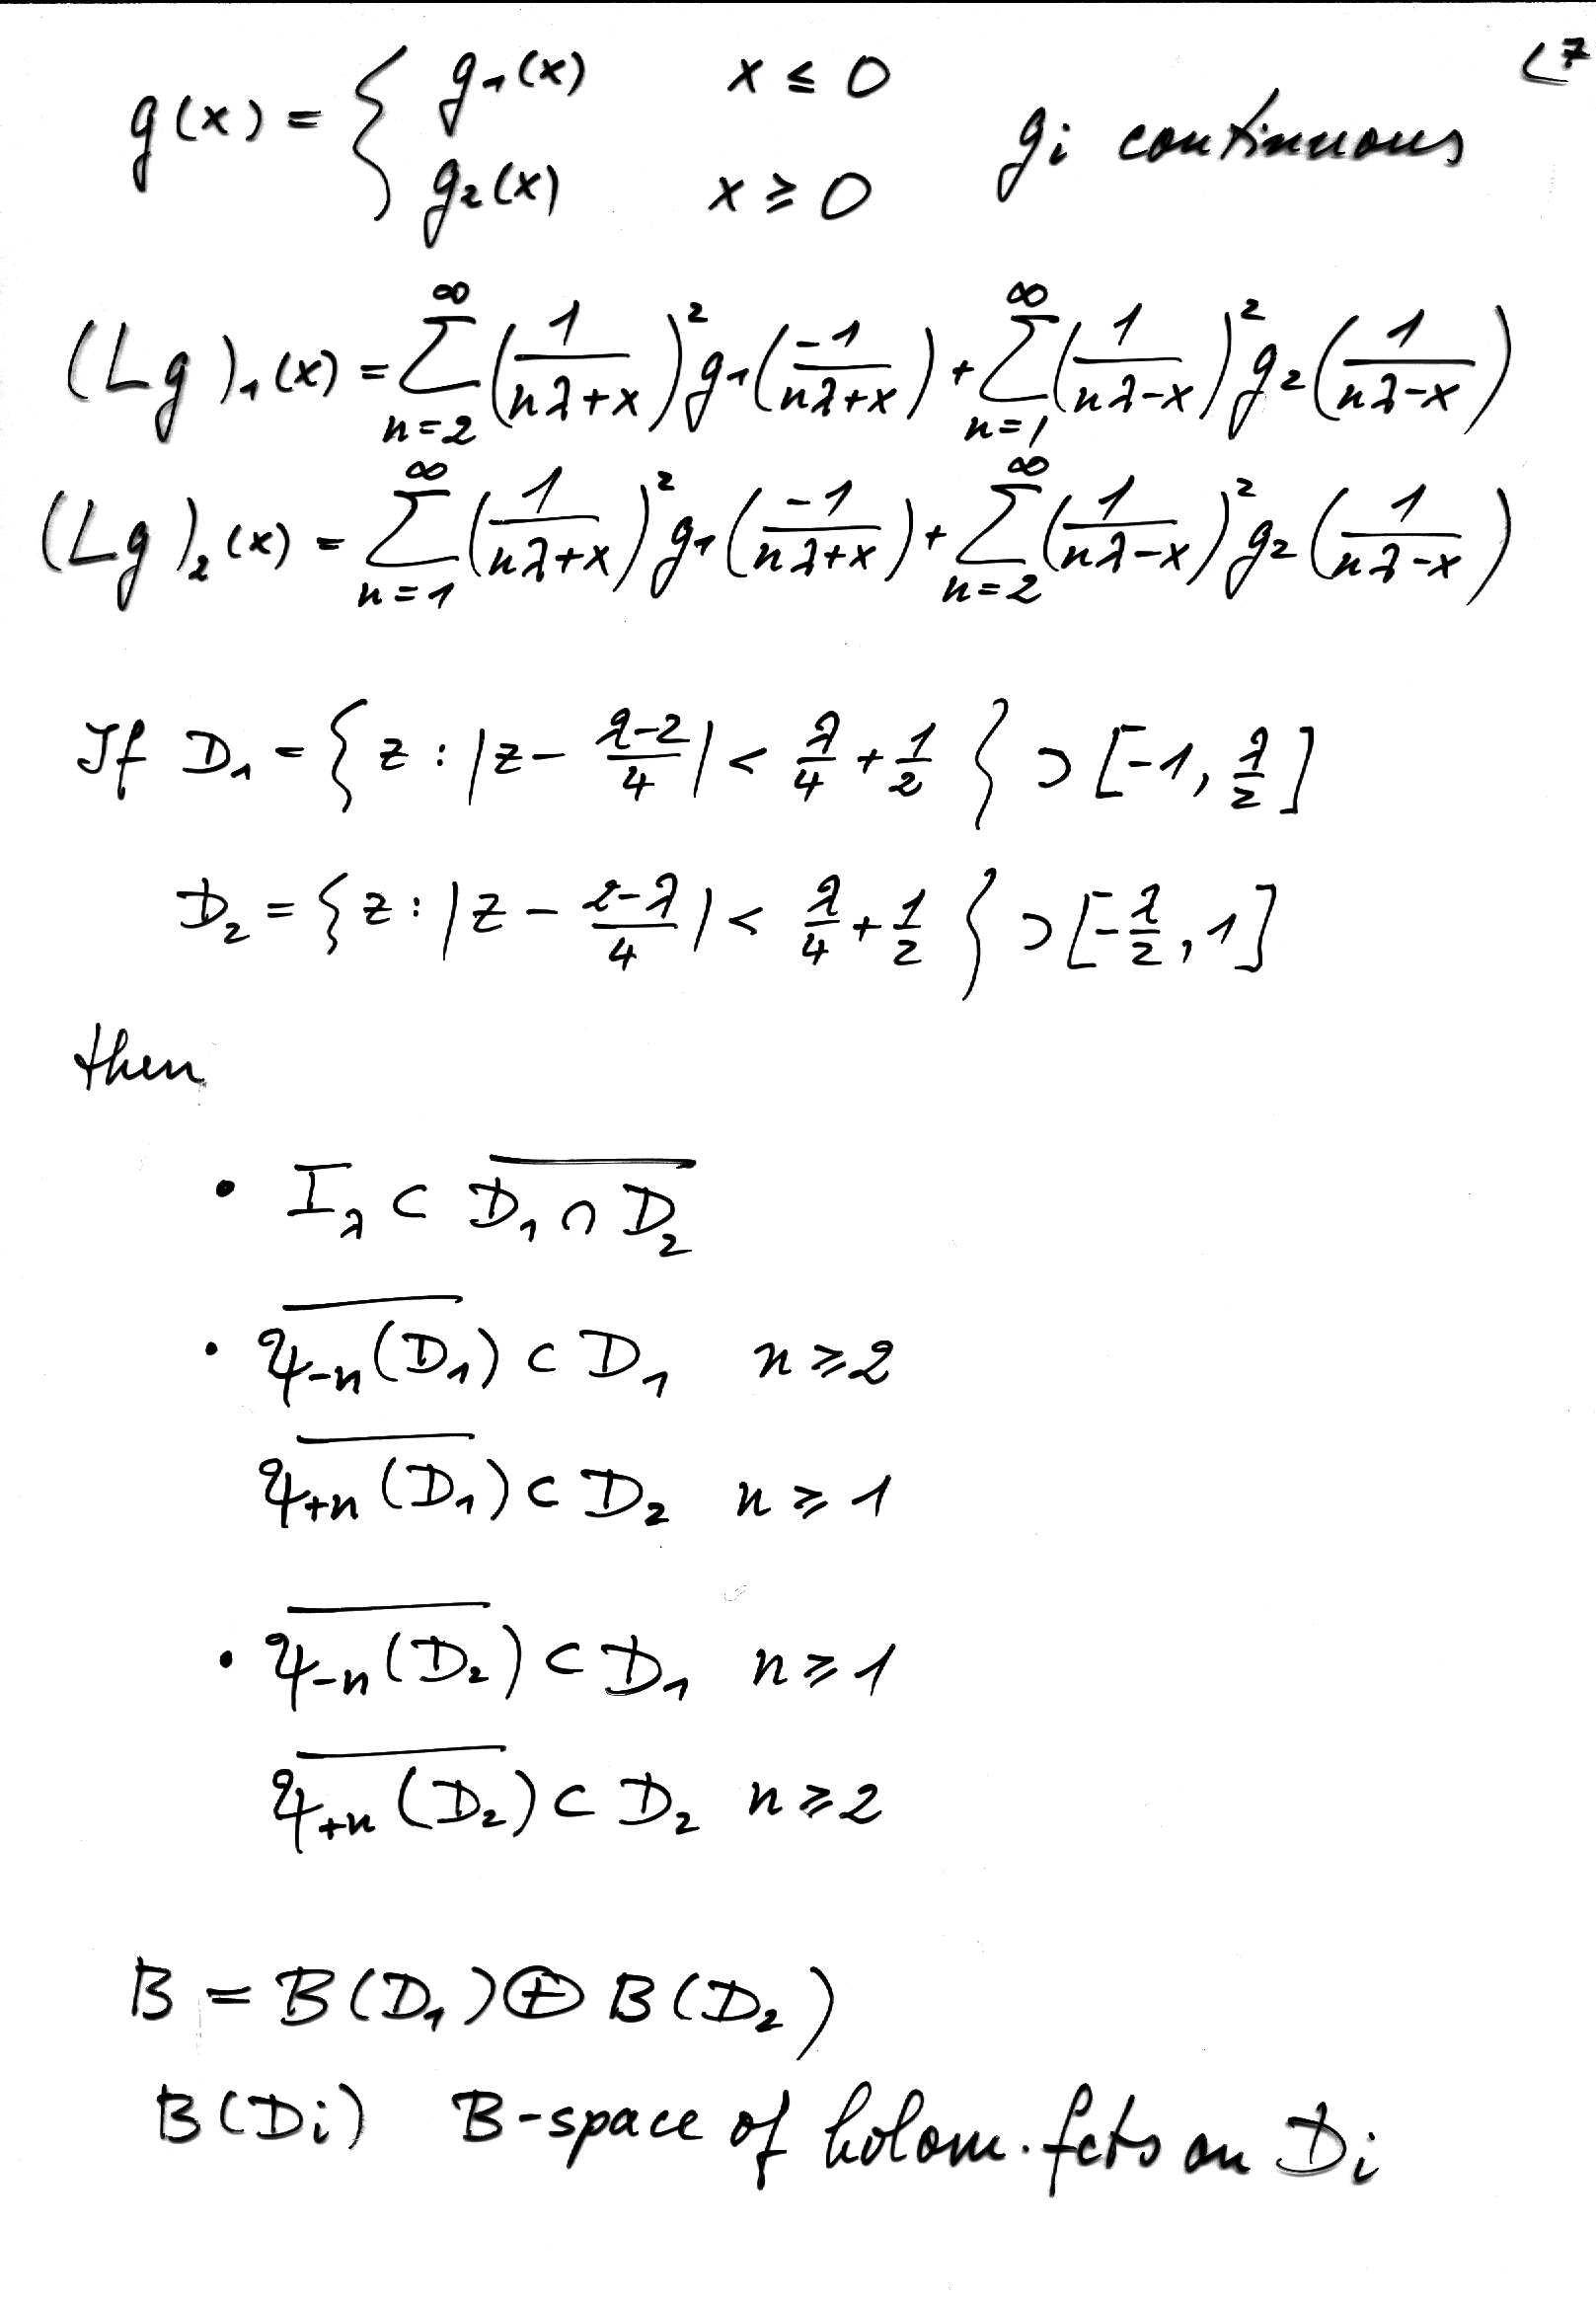 L7
g(x) = { g₁(x) x ≤ 0
g₂(x) x ≥ 0 gᵢ continuous
(Lg)₁(x) = ∑_{n=2}^{∞} (1/(nλ+x))² g₁(-1/(nλ+x)) + ∑_{n=1}^{∞} (1/(nλ-x))² g₂(1/(nλ-x))
(Lg)₂(x) = ∑_{n=1}^{∞} (1/(nλ+x))² g₁(-1/(nλ+x)) + ∑_{n=2}^{∞} (1/(nλ-x))² g₂(1/(nλ-x))
If D₁ = { z : |z - (λ-2)/4| < λ/4 + 1/2 } ⊃ [-1, λ/2]
D₂ = { z : |z - (2-λ)/4| < λ/4 + 1/2 } ⊃ [-λ/2, 1]
then
• I_λ ⊂ \overline{D₁ ∩ D₂}
• \overline{ψ₋ₙ(D₁)} ⊂ D₁ n ≥ 2
\overline{ψ₊ₙ(D₁)} ⊂ D₂ n ≥ 1
• \overline{ψ₋ₙ(D₂)} ⊂ D₁ n ≥ 1
\overline{ψ₊ₙ(D₂)} ⊂ D₂ n ≥ 2
B = B(D₁) ⊕ B(D₂)
B(Dᵢ) B-space of holom. fcts on Dᵢ